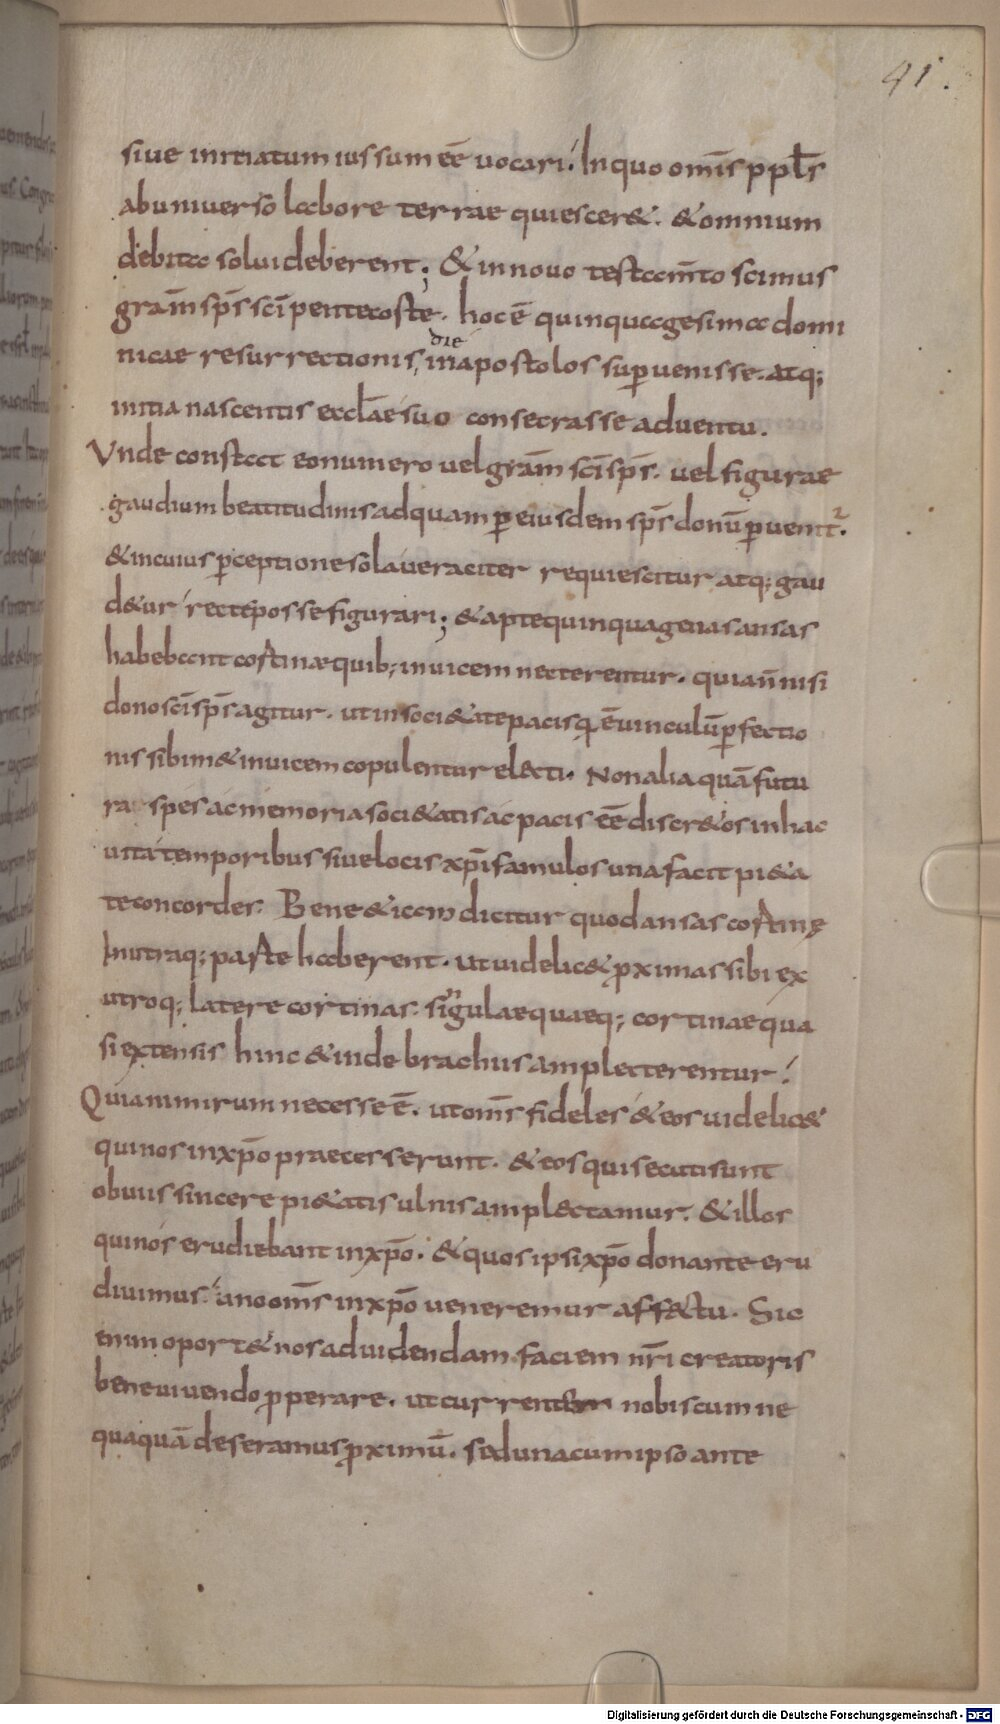 41.
siue initiatum iussum eē uocari. In quo omīs ppl̄s
ab uniuerso labore terrae quiescer&. & omnium
debita solui deberent; & in nouo testam̄to scimus
gram̄ sp̄s sc̄i pentecoste. hoc ē quinquagesima domi
nicae resurrectionis, die in apostolos superuenisse. atq;
initia nascentis eccl̄ae suo consecrasse aduentu.
Vnde constat eo numero uel gram̄ sc̄i sp̄s. uel figurae
gaudium beatitudinis ad quam p̱ eiusdem sp̄s donū p̱uenitr.
& in cuius p̱ceptione sola ueraciter requiescitur atq; gau
d&ur recte posse figurari; & apte quinquagenas ansas
habebant cortinae quib; inuicem necterentur. quia n̄ nisi
dono sc̄i sp̄s agitur. ut in soci&ate pacis q ē uinculū p̱fectio
nis sibim& inuicem copulentur electi. Non alia quā futu
ra spes ac memoria soci&atis ac pacis eē discr&os in hac
uita temporibus siue locis xp̄i famulos una facit pi&a
te concordes. Bene & iam dicitur quod ansas cortinę
in utraq; parte haberent. ut uidelic& p̱ximas sibi ex
utroq; latere cortinas singulae quaeq; cortinae qua
si extensis hinc & inde brachiis amplecterentur.
Quia nimirum necesse ē. ut om̄s fideles & eos uidelic&
qui nos in xp̄o praecesserunt. & eos qui secuti sunt
obuiis sincere pi&atis ulnis amplectamur. & illos
qui nos erudiebant in xp̄o. & quos ipsi xp̄o donante eru
diuimus. uno om̄s in xp̄o ueneremur affectu. Sic
enim oport& nos ad uidendam faciem nr̄i creatoris
bene uiuendo p̱perare. ut currentem nobiscum ne
quaquā deseramus p̱ximū. sed una cum ipso ante
Digitalisierung gefördert durch die Deutsche Forschungsgemeinschaft - DFG